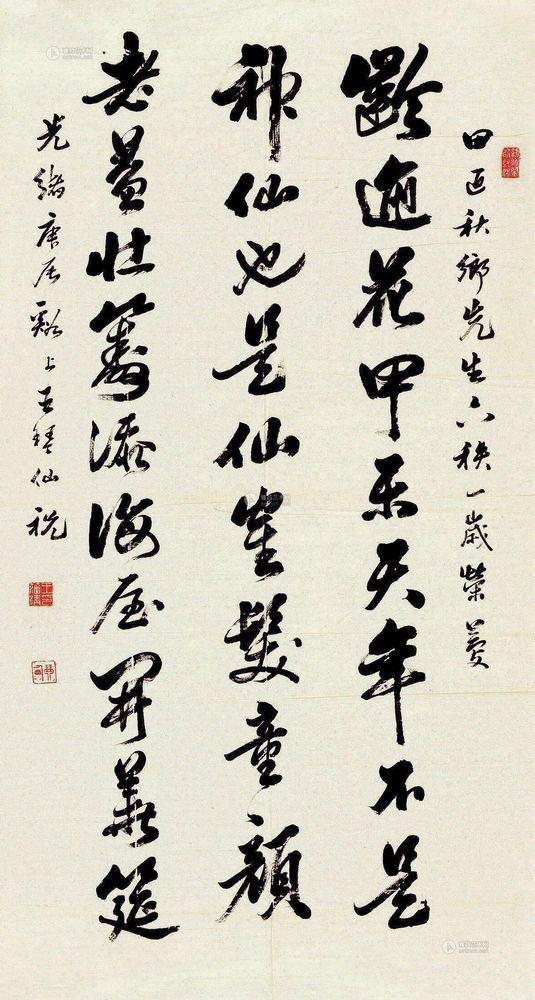 田秋鄉先生六秩一歲榮慶
齡逾花甲樂天年不是
神仙也是仙隺髮童顏
老益壯籌添海屋開華筵
光緒庚辰谿上王琴仙祝